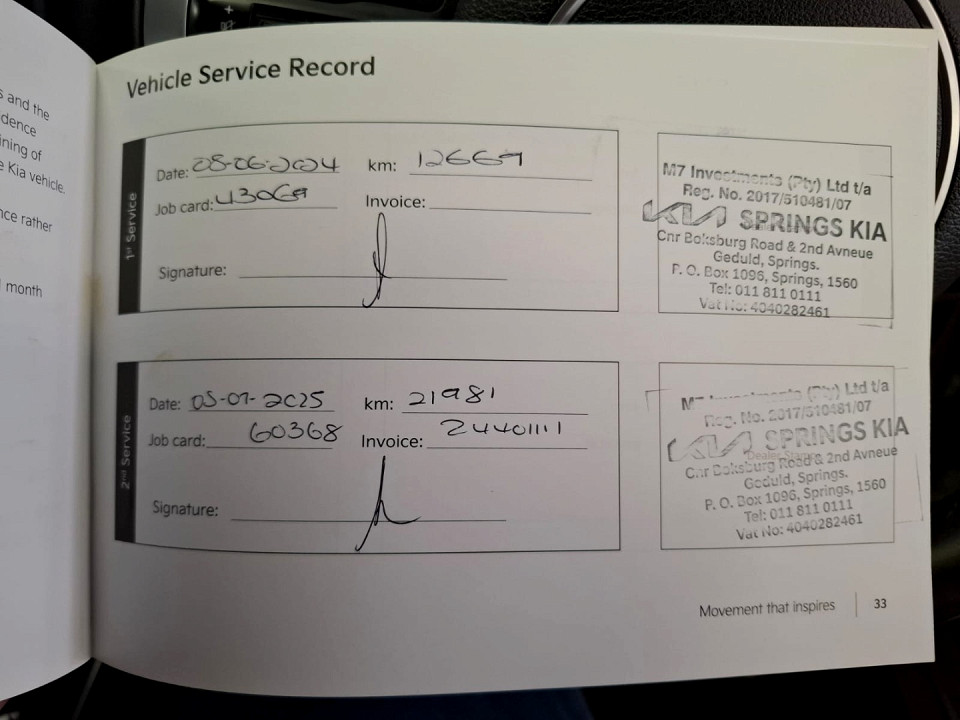 s and the
dence
ining of
e Kia vehicle.
nce rather
month
Vehicle Service Record
1st Service
Date: 05-06-2024 km: 12669
Job card: 43069 Invoice:
Signature:
M7 Investments (Pty) Ltd t/a
Reg. No. 2017/510481/07
KIA SPRINGS KIA
Cnr Boksburg Road & 2nd Avneue
Geduld, Springs.
P. O. Box 1096, Springs, 1560
Tel: 011 811 0111
Vat No: 4040282461
2nd Service
Date: 05-07-2025 km: 21981
Job card: 60368 Invoice: 24401111
Signature:
M7 Investments (Pty) Ltd t/a
Reg. No. 2017/510481/07
KIA SPRINGS KIA
Dealer Stamp
Cnr Boksburg Road & 2nd Avneue
Geduld, Springs.
P. O. Box 1096, Springs, 1560
Tel: 011 811 0111
Vat No: 4040282461
Movement that inspires 33